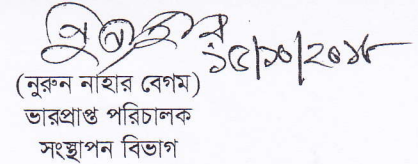 ১৫/১০/২০১৮
(নুরুন নাহার বেগম)
ভারপ্রাপ্ত পরিচালক
সংস্থাপন বিভাগ